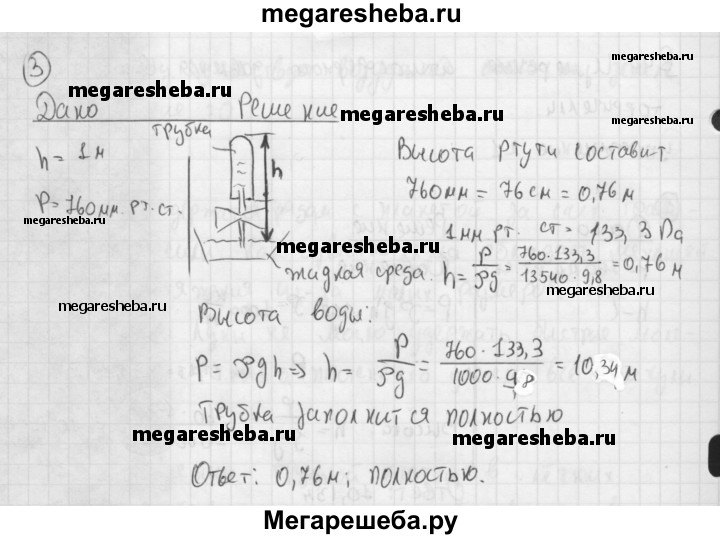 megaresheba.ru
3
megaresheba.ru
megaresheba.ru
Дано Решение
трубка
h = 1 м
h
Высота ртути составит
760мм = 76 см = 0,76 м
P = 760 мм. рт. ст.
megaresheba.ru
1 мм рт. ст = 133,3 Па
megaresheba.ru
жидкая среда
h = P/ρg = 760·133,3/13540·9,8 = 0,76 м
megaresheba.ru
megaresheba.ru
Высота воды:
P = ρgh ⇒ h = P/ρg = 760·133,3/1000·9,8 = 10,34 м
Трубка заполнится полностью
megaresheba.ru
megaresheba.ru
Ответ: 0,76 м; полностью.
Мегарешеба.ру